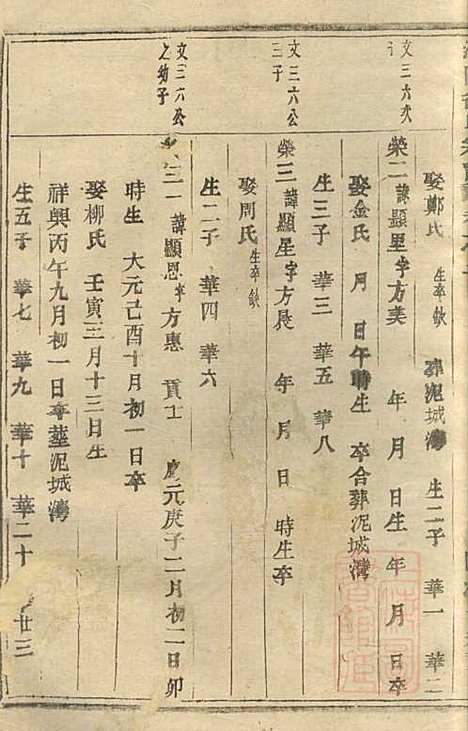 娶鄭氏 生卒缺 葬泥城灣 生二子 華一 華二
文三六次子
榮二 諱顯里字方美 年 月 日生 年 月 日卒
娶金氏 月 日午時生 卒合葬泥城灣
生三子 華三 華五 華八
文三六公三子
榮三 諱顯星字方長 年 月 日 時生卒
娶周氏 生卒缺
生二子 華四 華六
文三六公之幼子
三一 諱顯恩字方惠 貢士 慶元庚子二月初二日卯
時生 大元己酉十月初一日卒
娶柳氏 壬寅三月十三日生
祥興丙午九月初一日卒葬泥城灣
生五子 華七 華九 華十 華二十 廿三